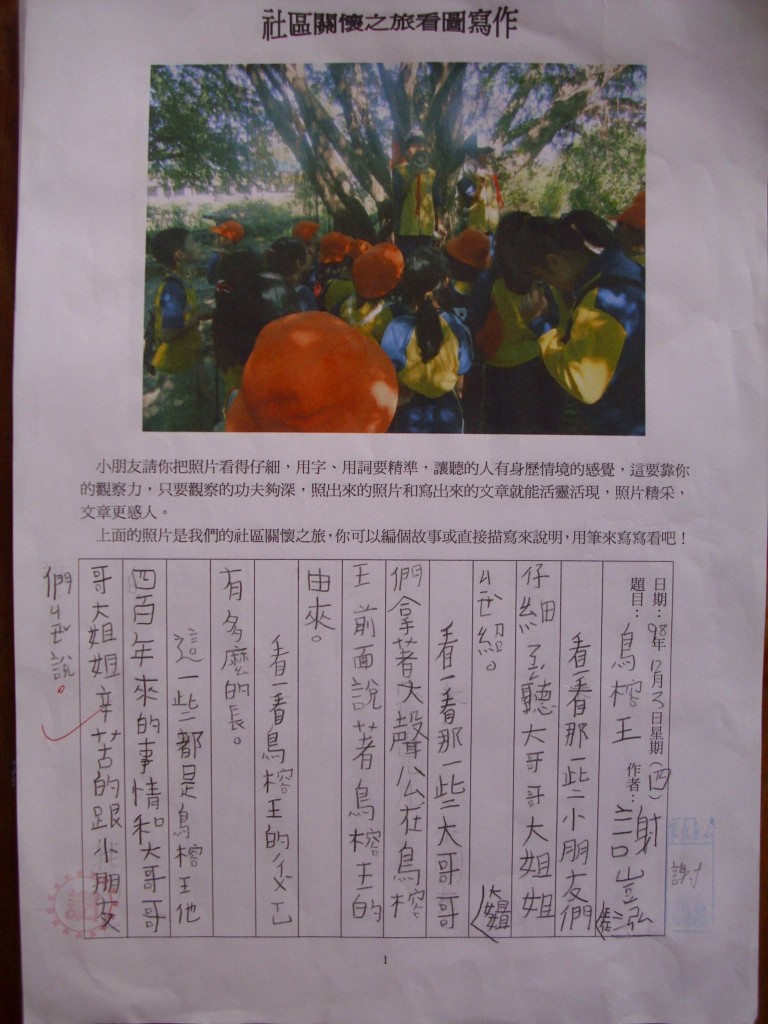 社區關懷之旅看圖寫作
小朋友請你把照片看得仔細，用字、用詞要精準，讓聽的人有身歷情境的感覺，這要靠你
的觀察力，只要觀察的功夫夠深，照出來的照片和寫出來的文章就能活靈活現，照片精采，
文章更感人。
上面的照片是我們的社區關懷之旅，你可以編個故事或直接描寫來說明，用筆來寫寫看吧！
日期：98年12月3日星期（四）
題目：鳥榕王 作者：謝豈泓
看一看那一些小朋友們
仔細聽大哥哥大姐姐
ㄐㄝ紹。
看一看那一些大哥哥
們拿著大聲公在鳥榕
王前面說著鳥榕王的
由來。
看一看鳥榕王的
有多麼的長。
這一些都是鳥榕王他
四百年來的事情和大哥哥
哥大姐姐辛苦的跟小朋友
們ㄐㄝ說。
謝
1